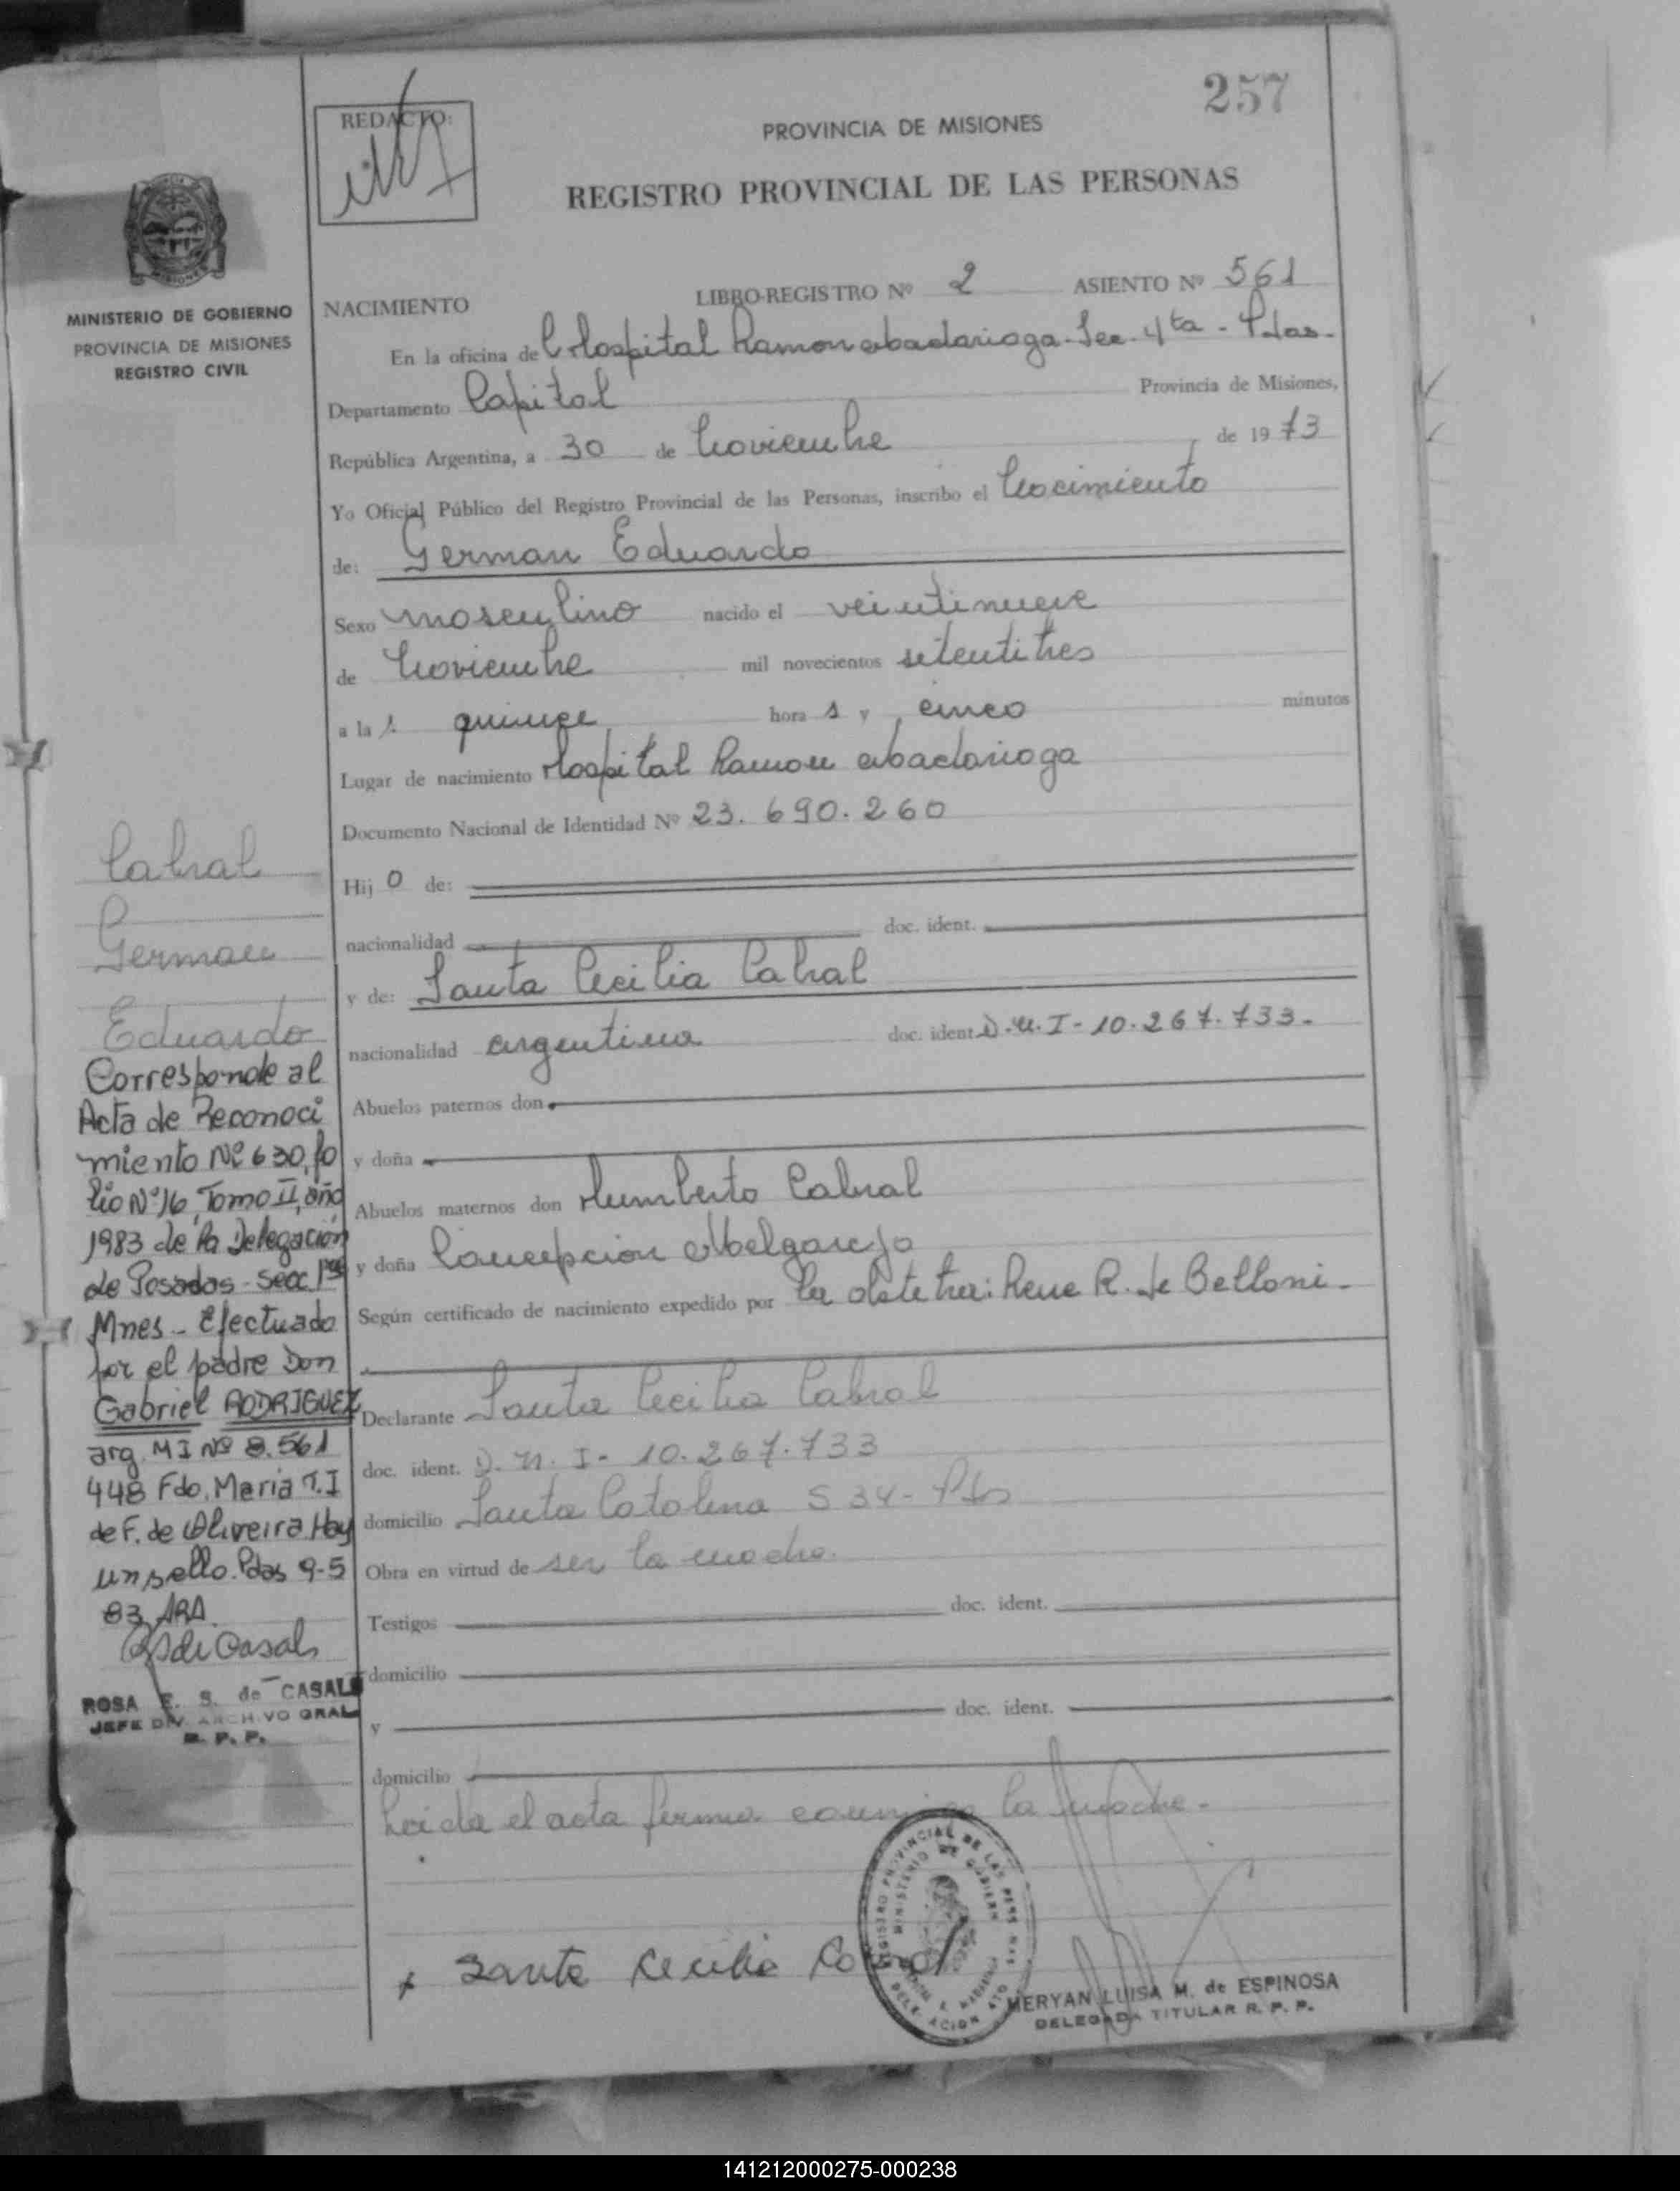 257
REDACTO:
PROVINCIA DE MISIONES
REGISTRO PROVINCIAL DE LAS PERSONAS
MINISTERIO DE GOBIERNO
PROVINCIA DE MISIONES
REGISTRO CIVIL
NACIMIENTO LIBRO-REGISTRO Nº 2 ASIENTO Nº 561
En la oficina del Hospital Ramon Madariaga - Sec. 4ta - Pdas.
Departamento Capital Provincia de Misiones,
República Argentina, a 30 de Noviembre de 1973
Yo Oficial Público del Registro Provincial de las Personas, inscribo el Nacimiento
de: German Eduardo
Sexo masculino nacido el veintinueve
de Noviembre mil novecientos setentitres
a la s quince hora s y cinco minutos
Lugar de nacimiento Hospital Ramon Madariaga
Documento Nacional de Identidad Nº 23.690.260
Hij o de:
nacionalidad doc. ident.
y de: Santa Cecilia Cabral
nacionalidad argentina doc. ident. D.N.I - 10.267.733.
Abuelos paternos don
y doña
Abuelos maternos don Humberto Cabral
y doña Concepcion Melgarejo
Según certificado de nacimiento expedido por la obstetra: Rene R. de Belloni -
Declarante Santa Cecilia Cabral
doc. ident. D.N.I - 10.267.733
domicilio Santa Catalina 534 - Pdas
Obra en virtud de ser la madre.
Testigos doc. ident.
domicilio
y doc. ident.
domicilio
Leida el acta firma conmigo la madre.
Santa Cecilia Cabral
REGISTRO PROVINCIAL DE LAS PERSONAS
MINISTERIO DE GOBIERNO
DELEGACION
MERYAN LUISA M. de ESPINOSA
DELEGADA TITULAR R. P. P.
Cabral
German
Eduardo
Corresponde al
Acta de Reconoci
miento Nº 630, fo
lio Nº 16, Tomo II, año
1983 de la Delegación
de Posadas - Secc. 1ra
Mnes - Efectuado
por el padre Don
Gabriel RODRIGUEZ
arg. MI Nº 8.561
448 Fdo. Maria T. I
de F. de Oliveira Hay
un sello. Pdas 9-5
83 ARA.
ES de Casals
ROSA E. S. de CASALS
JEFE DIV. ARCHIVO GRAL
R. P. P.
141212000275-000238